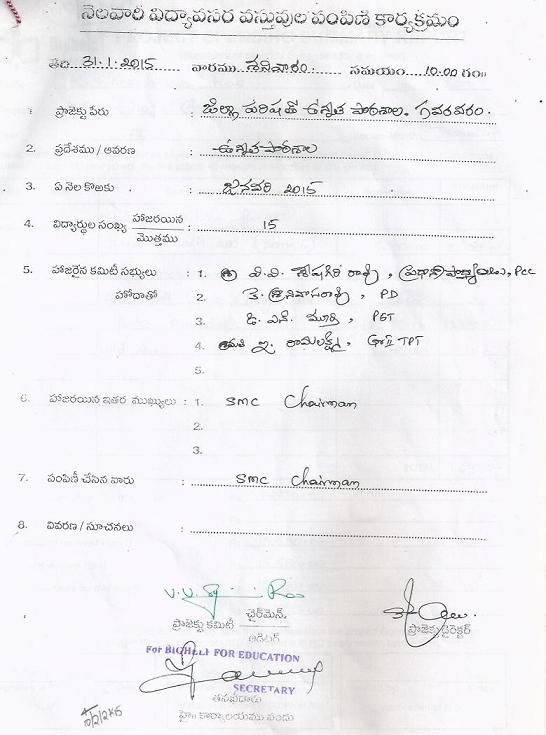 నెలవారి విద్యావసర వస్తువుల పంపిణీ కార్యక్రమం
తేది 31.1.2015 వారము శనివారం. సమయం 10.00 గం॥
1. ప్రాజెక్టు పేరు : జిల్లా పరిషత్ ఉన్నత పాఠశాల, గవరవరం.
2. ప్రదేశము / ఆవరణ : ఉన్నత పాఠశాల
3. ఏ నెల కొఱకు : జనవరి 2015
4. విద్యార్థుల సంఖ్య హాజరయిన / మొత్తము : 15
5. హాజరైన కమిటీ సభ్యులు : 1. వి.వి. శేషగిరి రావు, ప్రధానోపాధ్యాయులు, PCC
హోదాతో 2. కె. శ్రీనివాసరావు, PD
3. డి. ఎన్. మూర్తి, PET
4. శ్రీమతి ఇ. రామలక్ష్మి, Gr II TPT
5.
6. హాజరయిన ఇతర ముఖ్యులు : 1. SMC Chairman
2.
3.
7. పంపిణీ చేసిన వారు : SMC Chairman
8. వివరణ / సూచనలు :
ప్రాజెక్టు కమిటీ చైర్‌మెన్.
ఆడిటర్
ప్రాజెక్టు డైరెక్టర్
For BIGHELP FOR EDUCATION
SECRETARY
తనిఖీదారు
హై॥ కార్యాలయము నందు